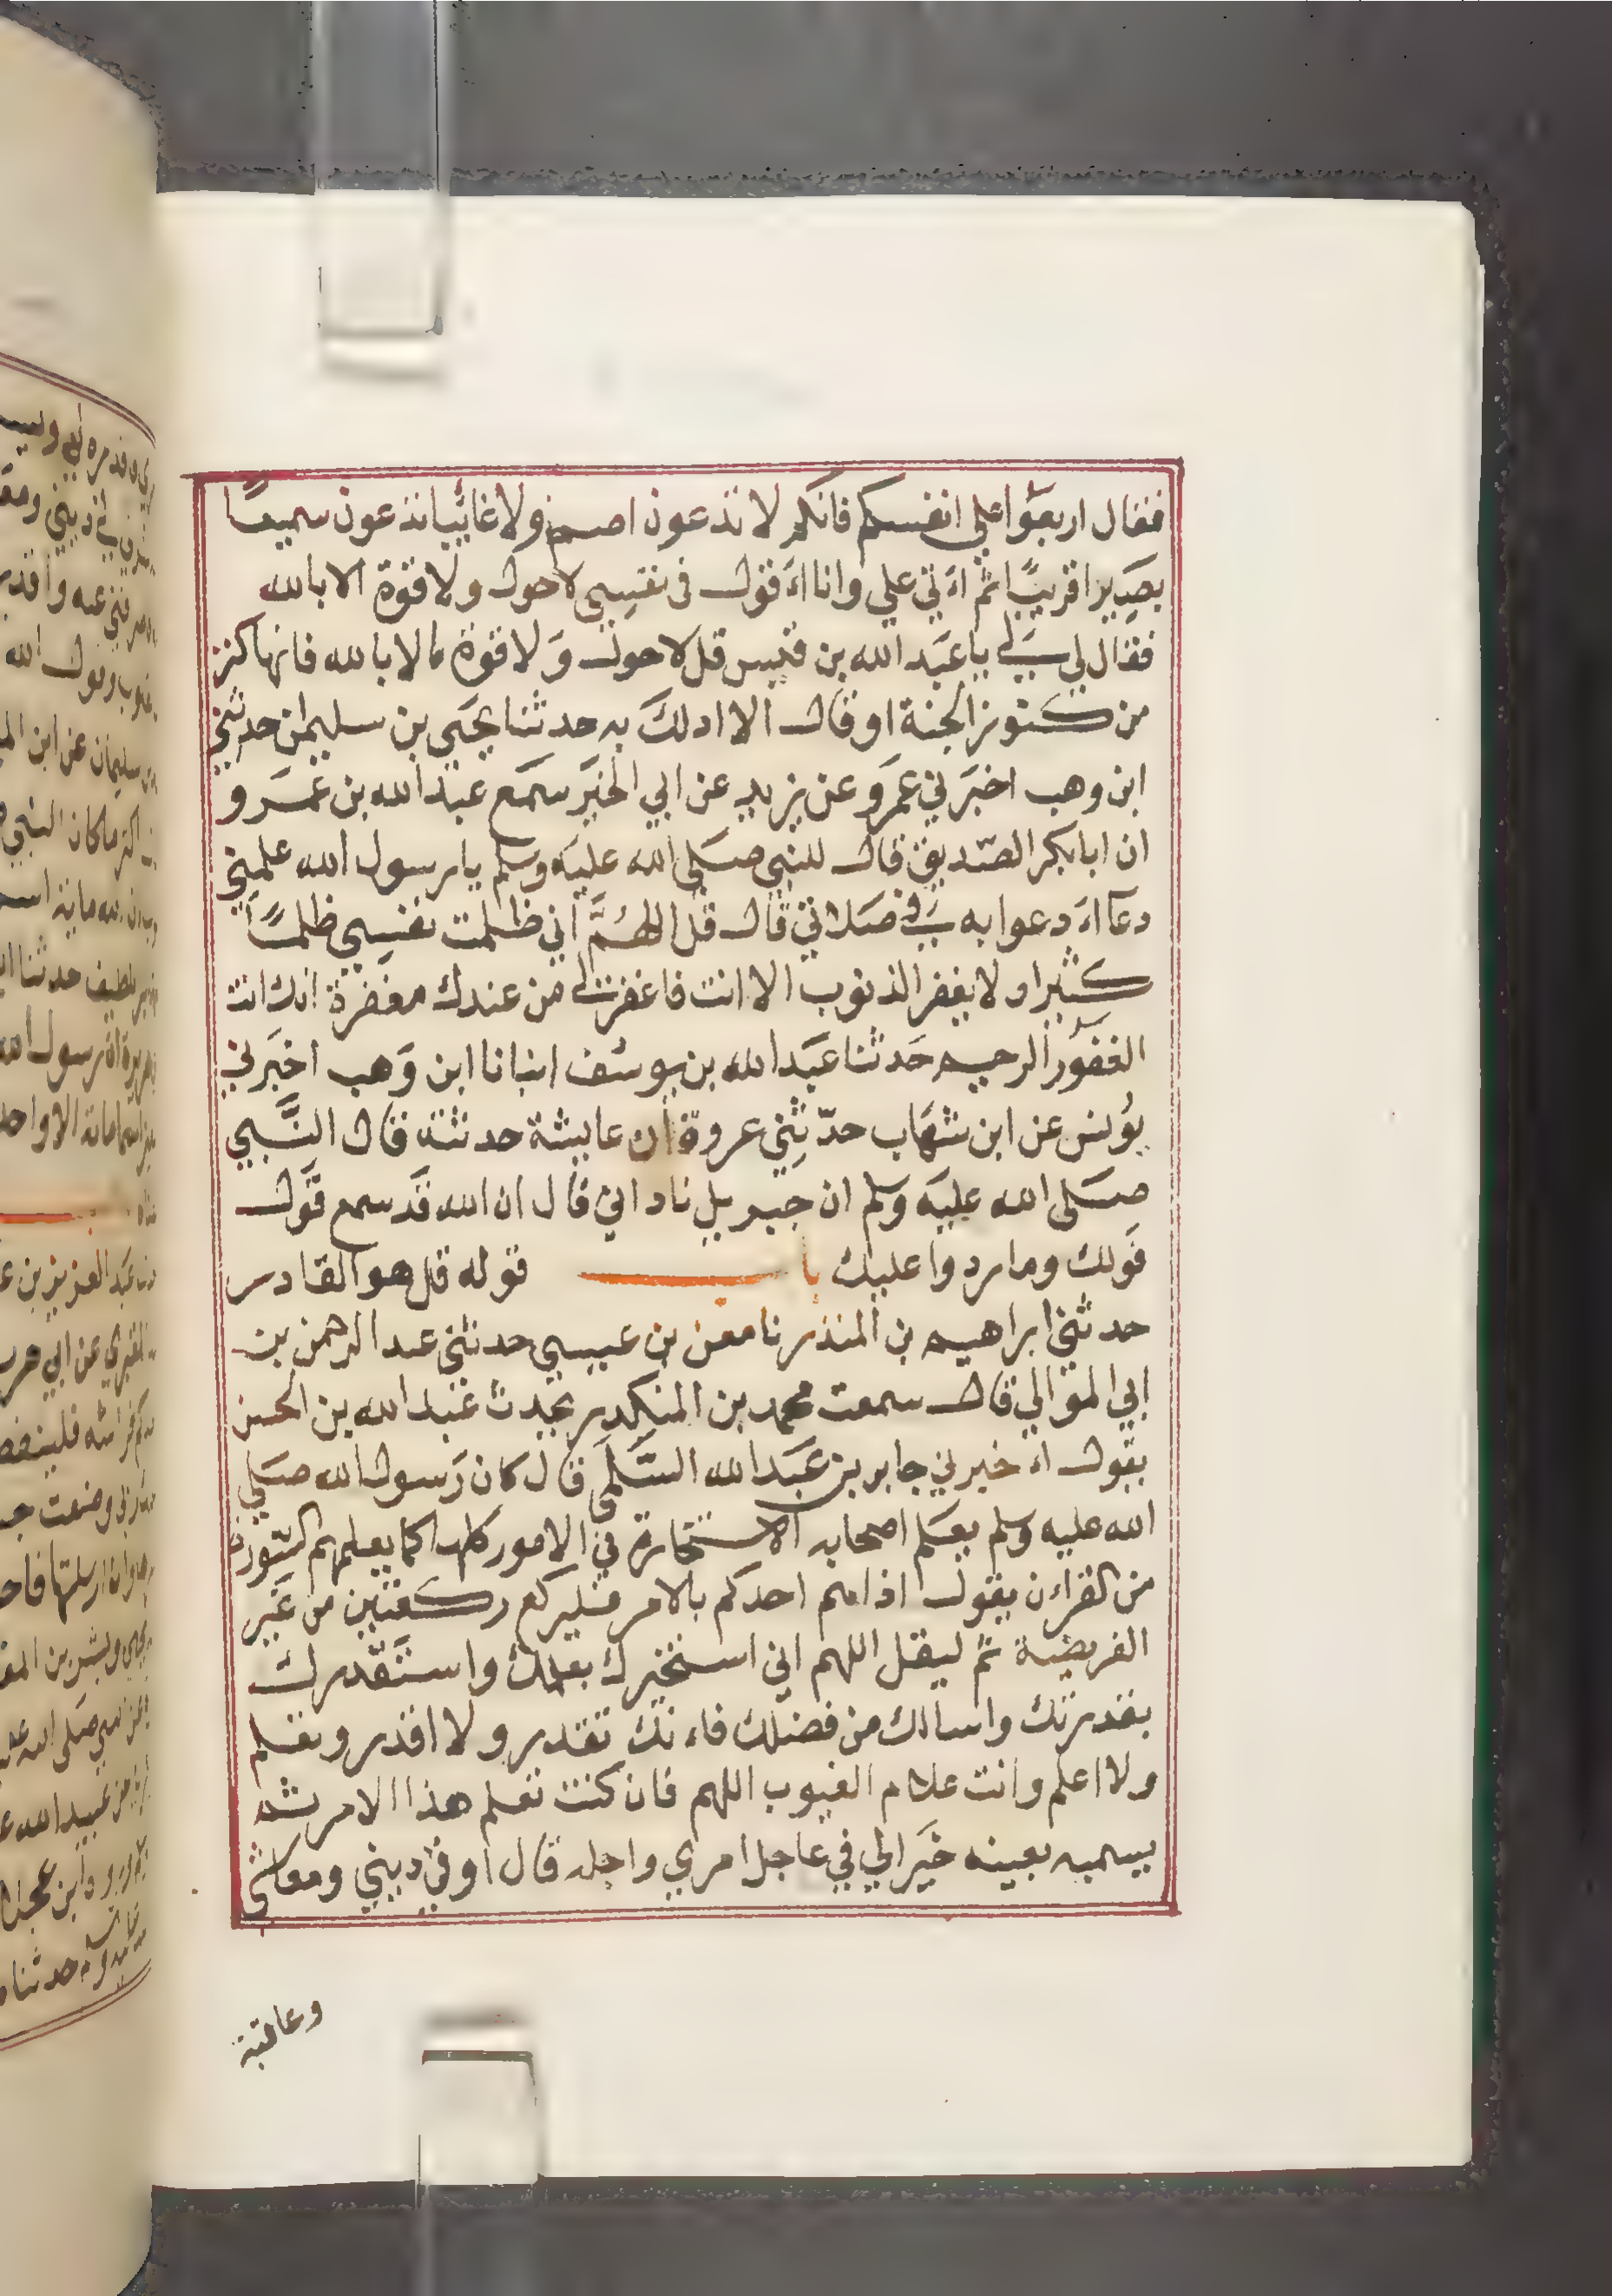 فقال اربعوا على انفسكم فانكم لا تدعون اصم ولا غائبا تدعون سميعًا
بصيرا قريبًا ثم اءتي علي وانا اءقول في نفسي لا حول ولا قوة الا بالله
فقال لي يا عبد الله بن قيس قل لا حول ولا قوة الا بالله فانها كنز
من كنوز الجنة او قال الا ادلك به حدثنا يحيى بن سليمن حدثني
ابن وهب اخبرني عمرو عن يزيد عن ابي الخير سمع عبد الله بن عمرو
ان ابا بكر الصديق قال للنبي صلى الله عليه وسلم يا رسول الله علمني
دعا اءدعوا به في صلاتي قال قل اللهم اني ظلمت نفسي ظلمًا
كثيرا ولا يغفر الذنوب الا انت فاغفر لي من عندك مغفرة انك انت
الغفور الرحيم حدثنا عبد الله بن يوسف انبانا ابن وهب اخبرني
يونس عن ابن شهاب حدثني عروة ان عايشة حدثته قال النبي
صلى الله عليه وسلم ان جبريل ناداني قال ان الله قد سمع قول
قولك وما ردوا عليك باب قوله قل هو القادر
حدثني ابراهيم بن المنذر نا معن بن عيسى حدثني عبد الرحمن بن
ابي الموالي قال سمعت محمد بن المنكدر يحدث عبد الله بن الحسن
يقول اءخبرني جابر بن عبد الله السلمى قال كان رسول الله صلى
الله عليه وسلم يعلم اصحابه الاستخارة في الامور كلها كما يعلمهم السورة
من القراءن يقول اذا هم احدكم بالامر فليركع ركعتين من غير
الفريضة ثم ليقل اللهم اني استخيرك بعلمك واستقدرك
بقدرتك واسالك من فضلك فاءنك تقدر ولا اقدر وتعلم
ولا اعلم وانت علام الغيوب اللهم فان كنت تعلم هذا الامر ثم
يسميه بعينه خيرا لي في عاجل امري واجله قال او في ديني ومعاشي
وعاقبة